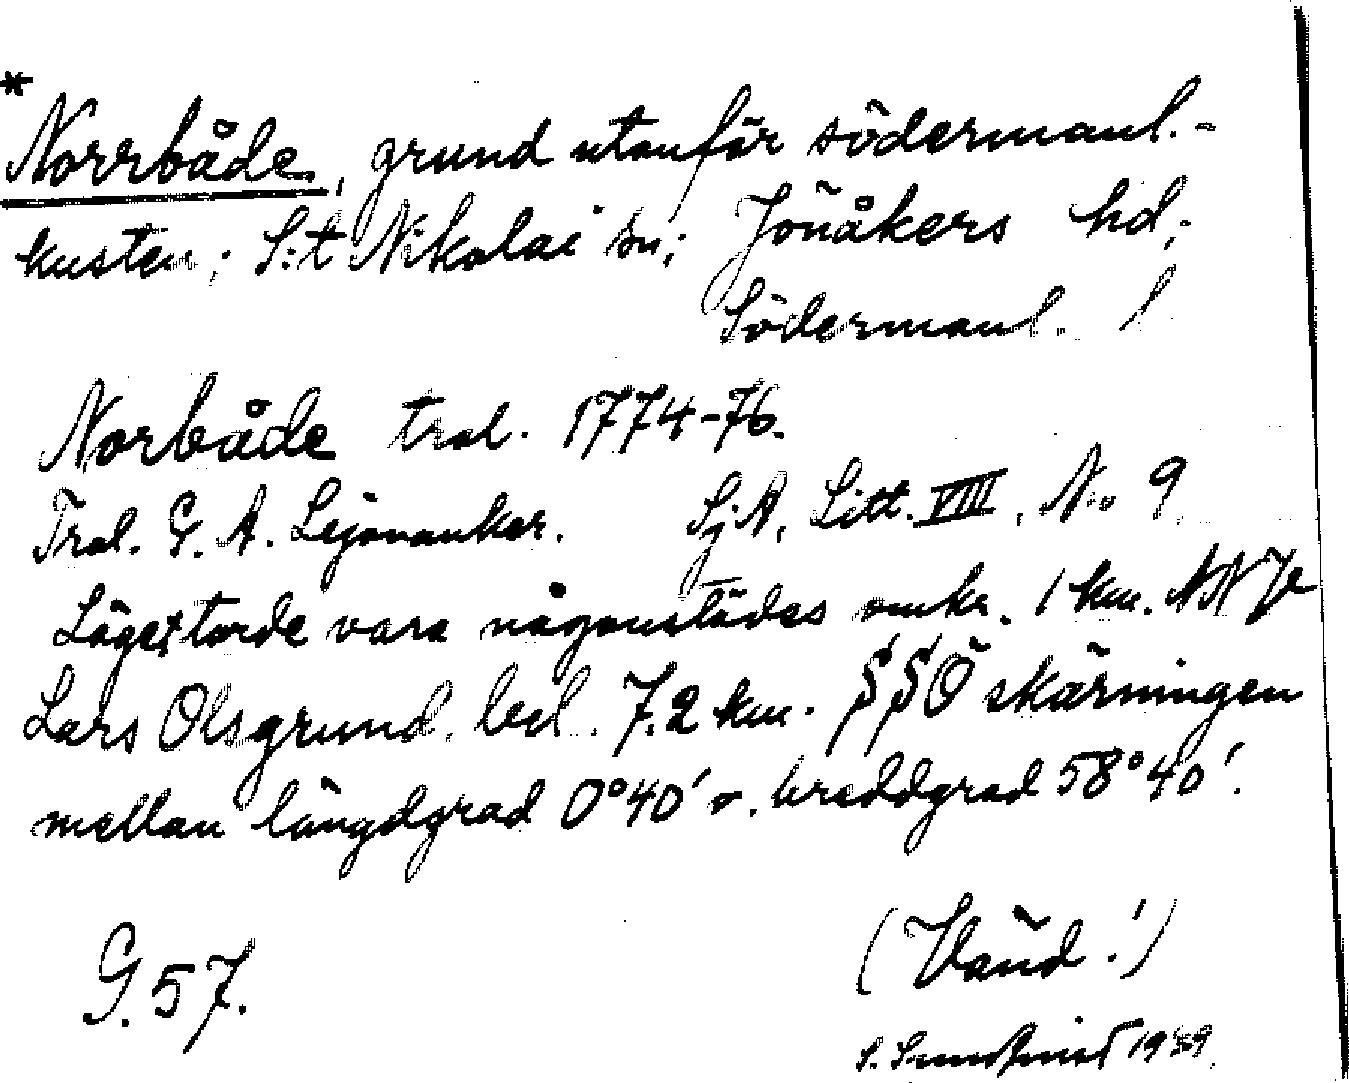 * Norrbåde, grund utanför södermanl.-
kusten; S:t Nikolai sn; Jönåkers hd;
Södermanl. l
Norbåde tral. 1774-76.
Tral. G. A. Lejonankar. Sj.A. Litt. VIII. No 9
Läget torde vara någonstädes omkr. 1 km. NNV
Lars Olsgrund, bel. 7.2 km. SSÖ skärningen
mellan längdgrad 0°40' o. breddgrad 58°40'.
G. 57.
(Vänd!)